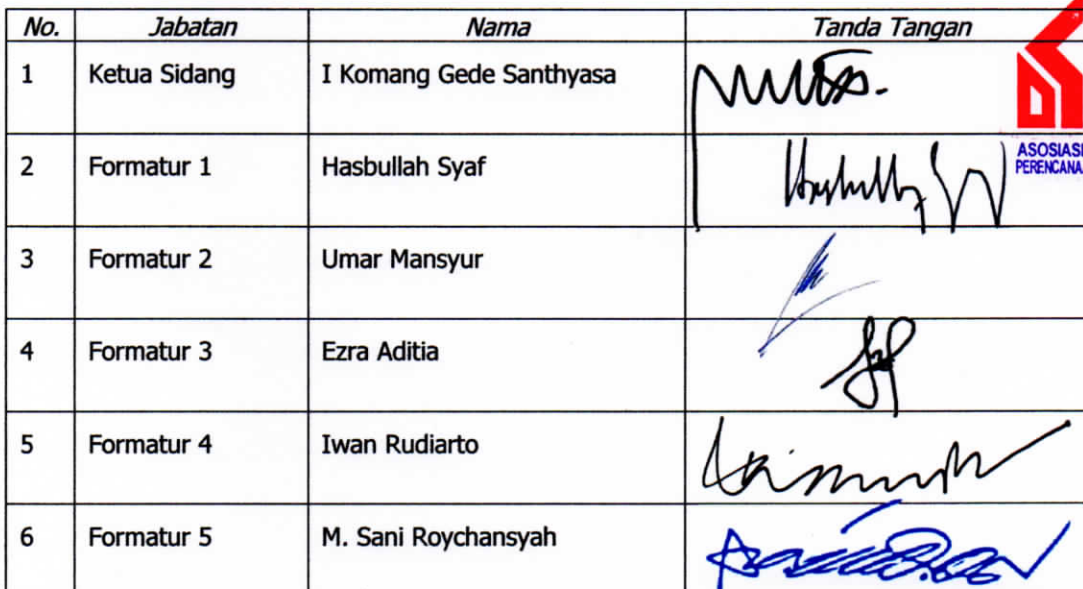 No. Jabatan Nama Tanda Tangan
1 Ketua Sidang I Komang Gede Santhyasa
ASOSIASI
PERENCANA
2 Formatur 1 Hasbullah Syaf
3 Formatur 2 Umar Mansyur
4 Formatur 3 Ezra Aditia
5 Formatur 4 Iwan Rudiarto
6 Formatur 5 M. Sani Roychansyah